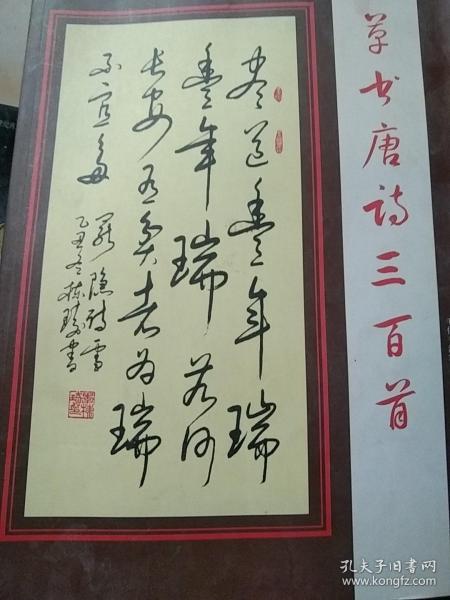 草书唐诗三百首
尽道丰年瑞
丰年瑞若何
长安有贫者为瑞
不宜多 罗隐诗雪
乙丑冬 书
孔夫子旧书网
www.kongfz.com